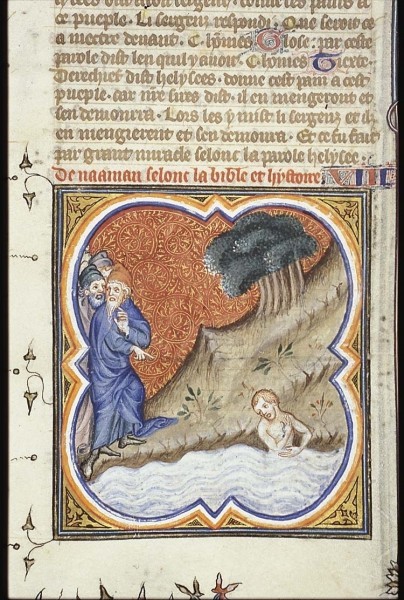 ce pueple. Li sergenz respondi. Que seroit ce
a mectre devant. C. hommes Glose. par ceste
parole dist len quil y avoit. C. hommes Tiexte.
Derechief dist helysees. donne cest pain a cest
pueple. car nre sires dist. il en mengeront et
sen demourra. Lors les y mist li sergenz et dit
en mengierent et sen demoura. Et ce fu fait
par grant miracle selonc la parole helysee.
De naaman selonc la bible et hystoire VIII